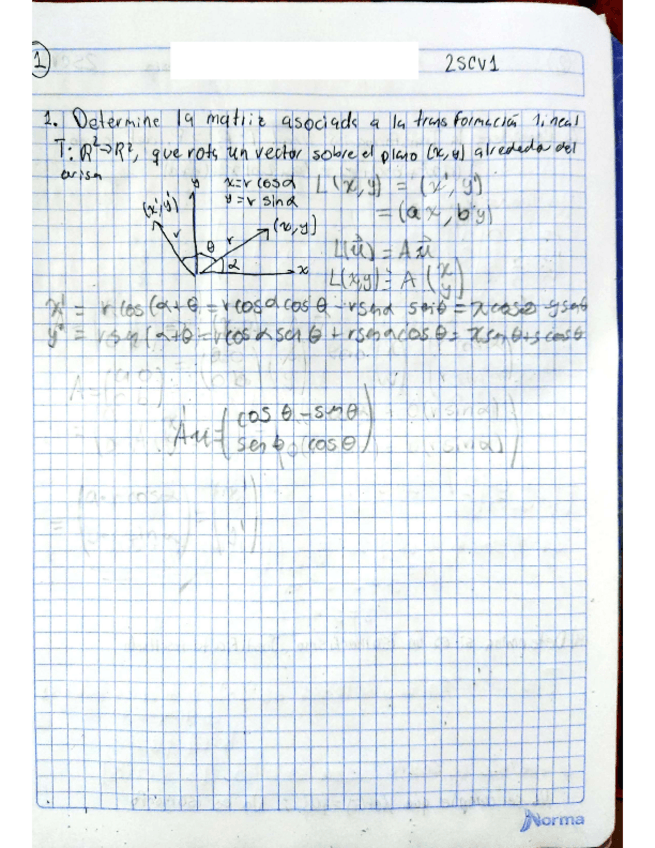 1
2SCV1
1. Determine la matriz asociada a la transformación lineal
T: R²→R², que rota un vector sobre el plano (x,y) alrededor del
origen
y x=r cosα L(x,y) = (x',y')
(x',y') y=r sinα = (ax, by)
r θ r (x,y)
α x
L(u⃗) = Au⃗
L(x,y) = A (x y)
x' = r cos(α+θ = r cosα cosθ - r senα senθ = x cosθ - y senθ
y' = r sen(α+θ = r cosα senθ + r senα cosθ = x senθ + y cosθ
Au = (cosθ - senθ
senθ cosθ)
Norma